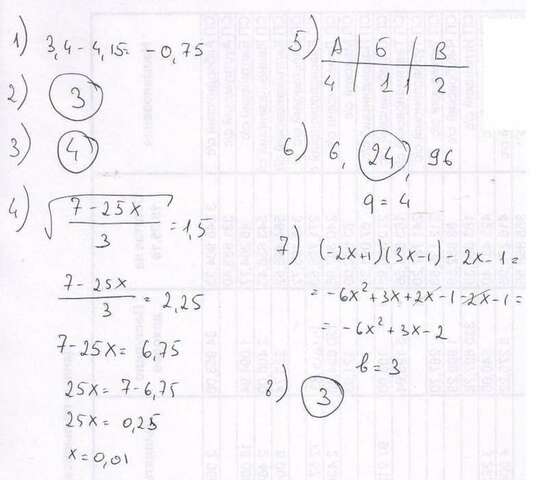 1) 3,4 - 4,15 = - 0,75
2) 3
3) 4
4) √((7 - 25x)/3) = 1,5
(7 - 25x)/3 = 2,25
7 - 25x = 6,75
25x = 7 - 6,75
25x = 0,25
x = 0,01
5) А | Б | В
4 | 1 | 2
6) 6, 24, 96
q = 4
7) (-2x+1)(3x-1) - 2x - 1 =
= -6x² + 3x + 2x - 1 - 2x - 1 =
= -6x² + 3x - 2
b = 3
8) 3